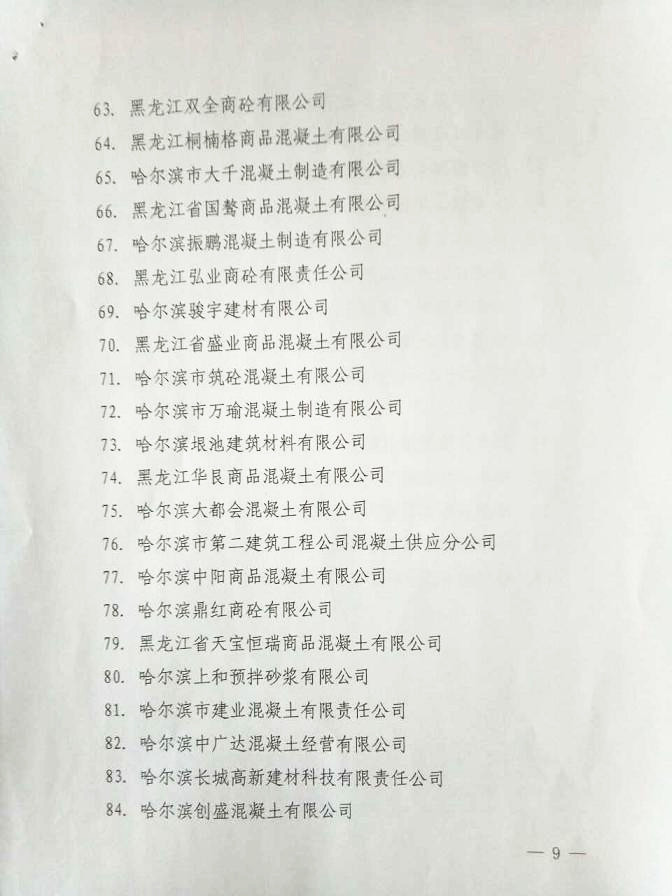 63. 黑龙江双全商砼有限公司
64. 黑龙江桐楠格商品混凝土有限公司
65. 哈尔滨市大千混凝土制造有限公司
66. 黑龙江省国骜商品混凝土有限公司
67. 哈尔滨振鹏混凝土制造有限公司
68. 黑龙江弘业商砼有限责任公司
69. 哈尔滨骏宇建材有限公司
70. 黑龙江省盛业商品混凝土有限公司
71. 哈尔滨市筑砼混凝土有限公司
72. 哈尔滨市万瑜混凝土制造有限公司
73. 哈尔滨垠池建筑材料有限公司
74. 黑龙江华艮商品混凝土有限公司
75. 哈尔滨大都会混凝土有限公司
76. 哈尔滨市第二建筑工程公司混凝土供应分公司
77. 哈尔滨中阳商品混凝土有限公司
78. 哈尔滨鼎红商砼有限公司
79. 黑龙江省天宝恒瑞商品混凝土有限公司
80. 哈尔滨上和预拌砂浆有限公司
81. 哈尔滨市建业混凝土有限责任公司
82. 哈尔滨中广达混凝土经营有限公司
83. 哈尔滨长城高新建材科技有限责任公司
84. 哈尔滨创盛混凝土有限公司
— 9 —